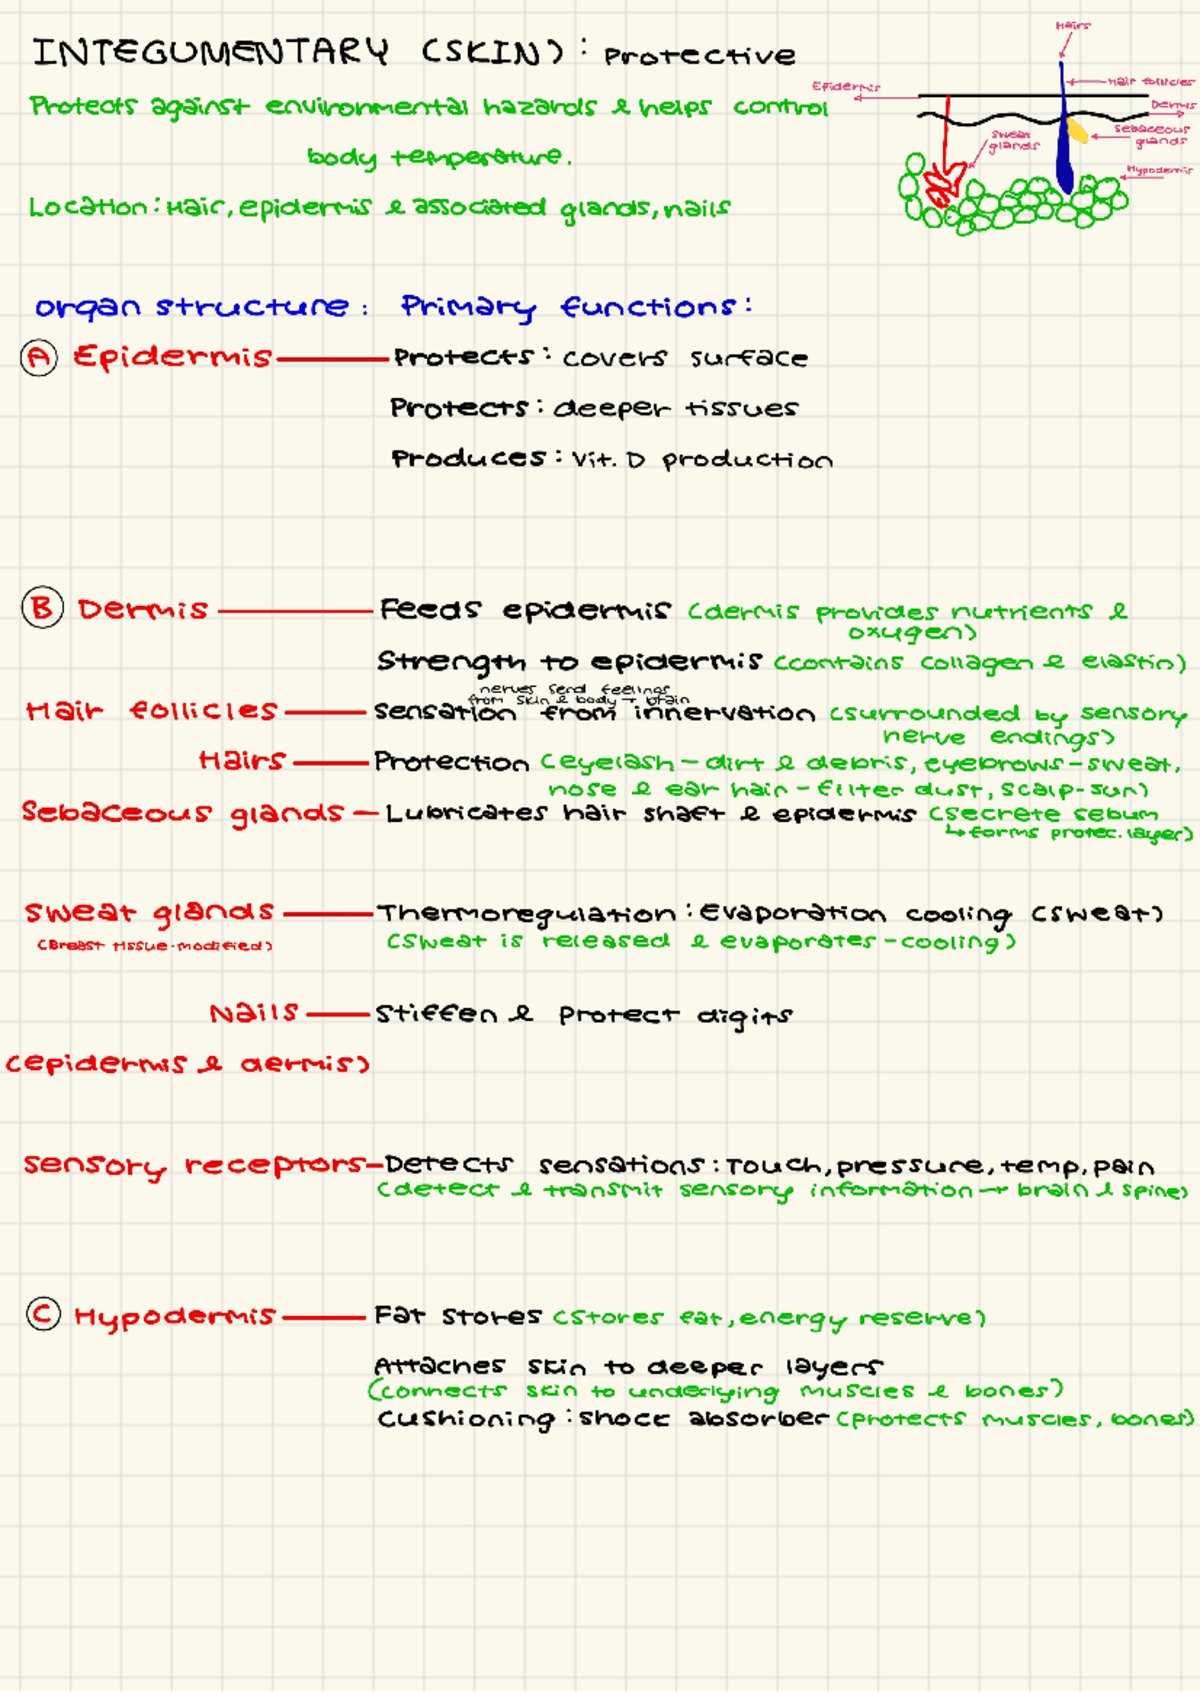 INTEGUMENTARY (SKIN): Protective
Protects against environmental hazards & helps control
body temperature.
Location: Hair, epidermis & associated glands, nails
Hairs
Hair follicles
Epidermis
Dermis
Sweat glands
Sebaceous glands
Hypodermis
organ structure: Primary functions:
A Epidermis — Protects: covers surface
Protects: deeper tissues
Produces: Vit. D production
B Dermis — Feeds epidermis (dermis provides nutrients &
oxygen)
Strength to epidermis (contains collagen & elastin)
nerves send feelings
from skin & body → brain
Hair follicles — sensation from innervation (surrounded by sensory
nerve endings)
Hairs — Protection (eyelash - dirt & debris, eyebrows - sweat,
nose & ear hair - filter dust, scalp - sun)
Sebaceous glands — Lubricates hair shaft & epidermis (secrete sebum
↳ forms protec. layer)
Sweat glands — Thermoregulation: Evaporation cooling (sweat)
(Breast tissue-modified) (Sweat is released & evaporates - cooling)
Nails — Stiffen & protect digits
(epidermis & dermis)
Sensory receptors — Detects sensations: Touch, pressure, temp, pain
(detect & transmit sensory information → brain & spine)
C Hypodermis — Fat stores (stores fat, energy reserve)
Attaches skin to deeper layers
(connects skin to underlying muscles & bones)
Cushioning: shock absorber (protects muscles, bones)